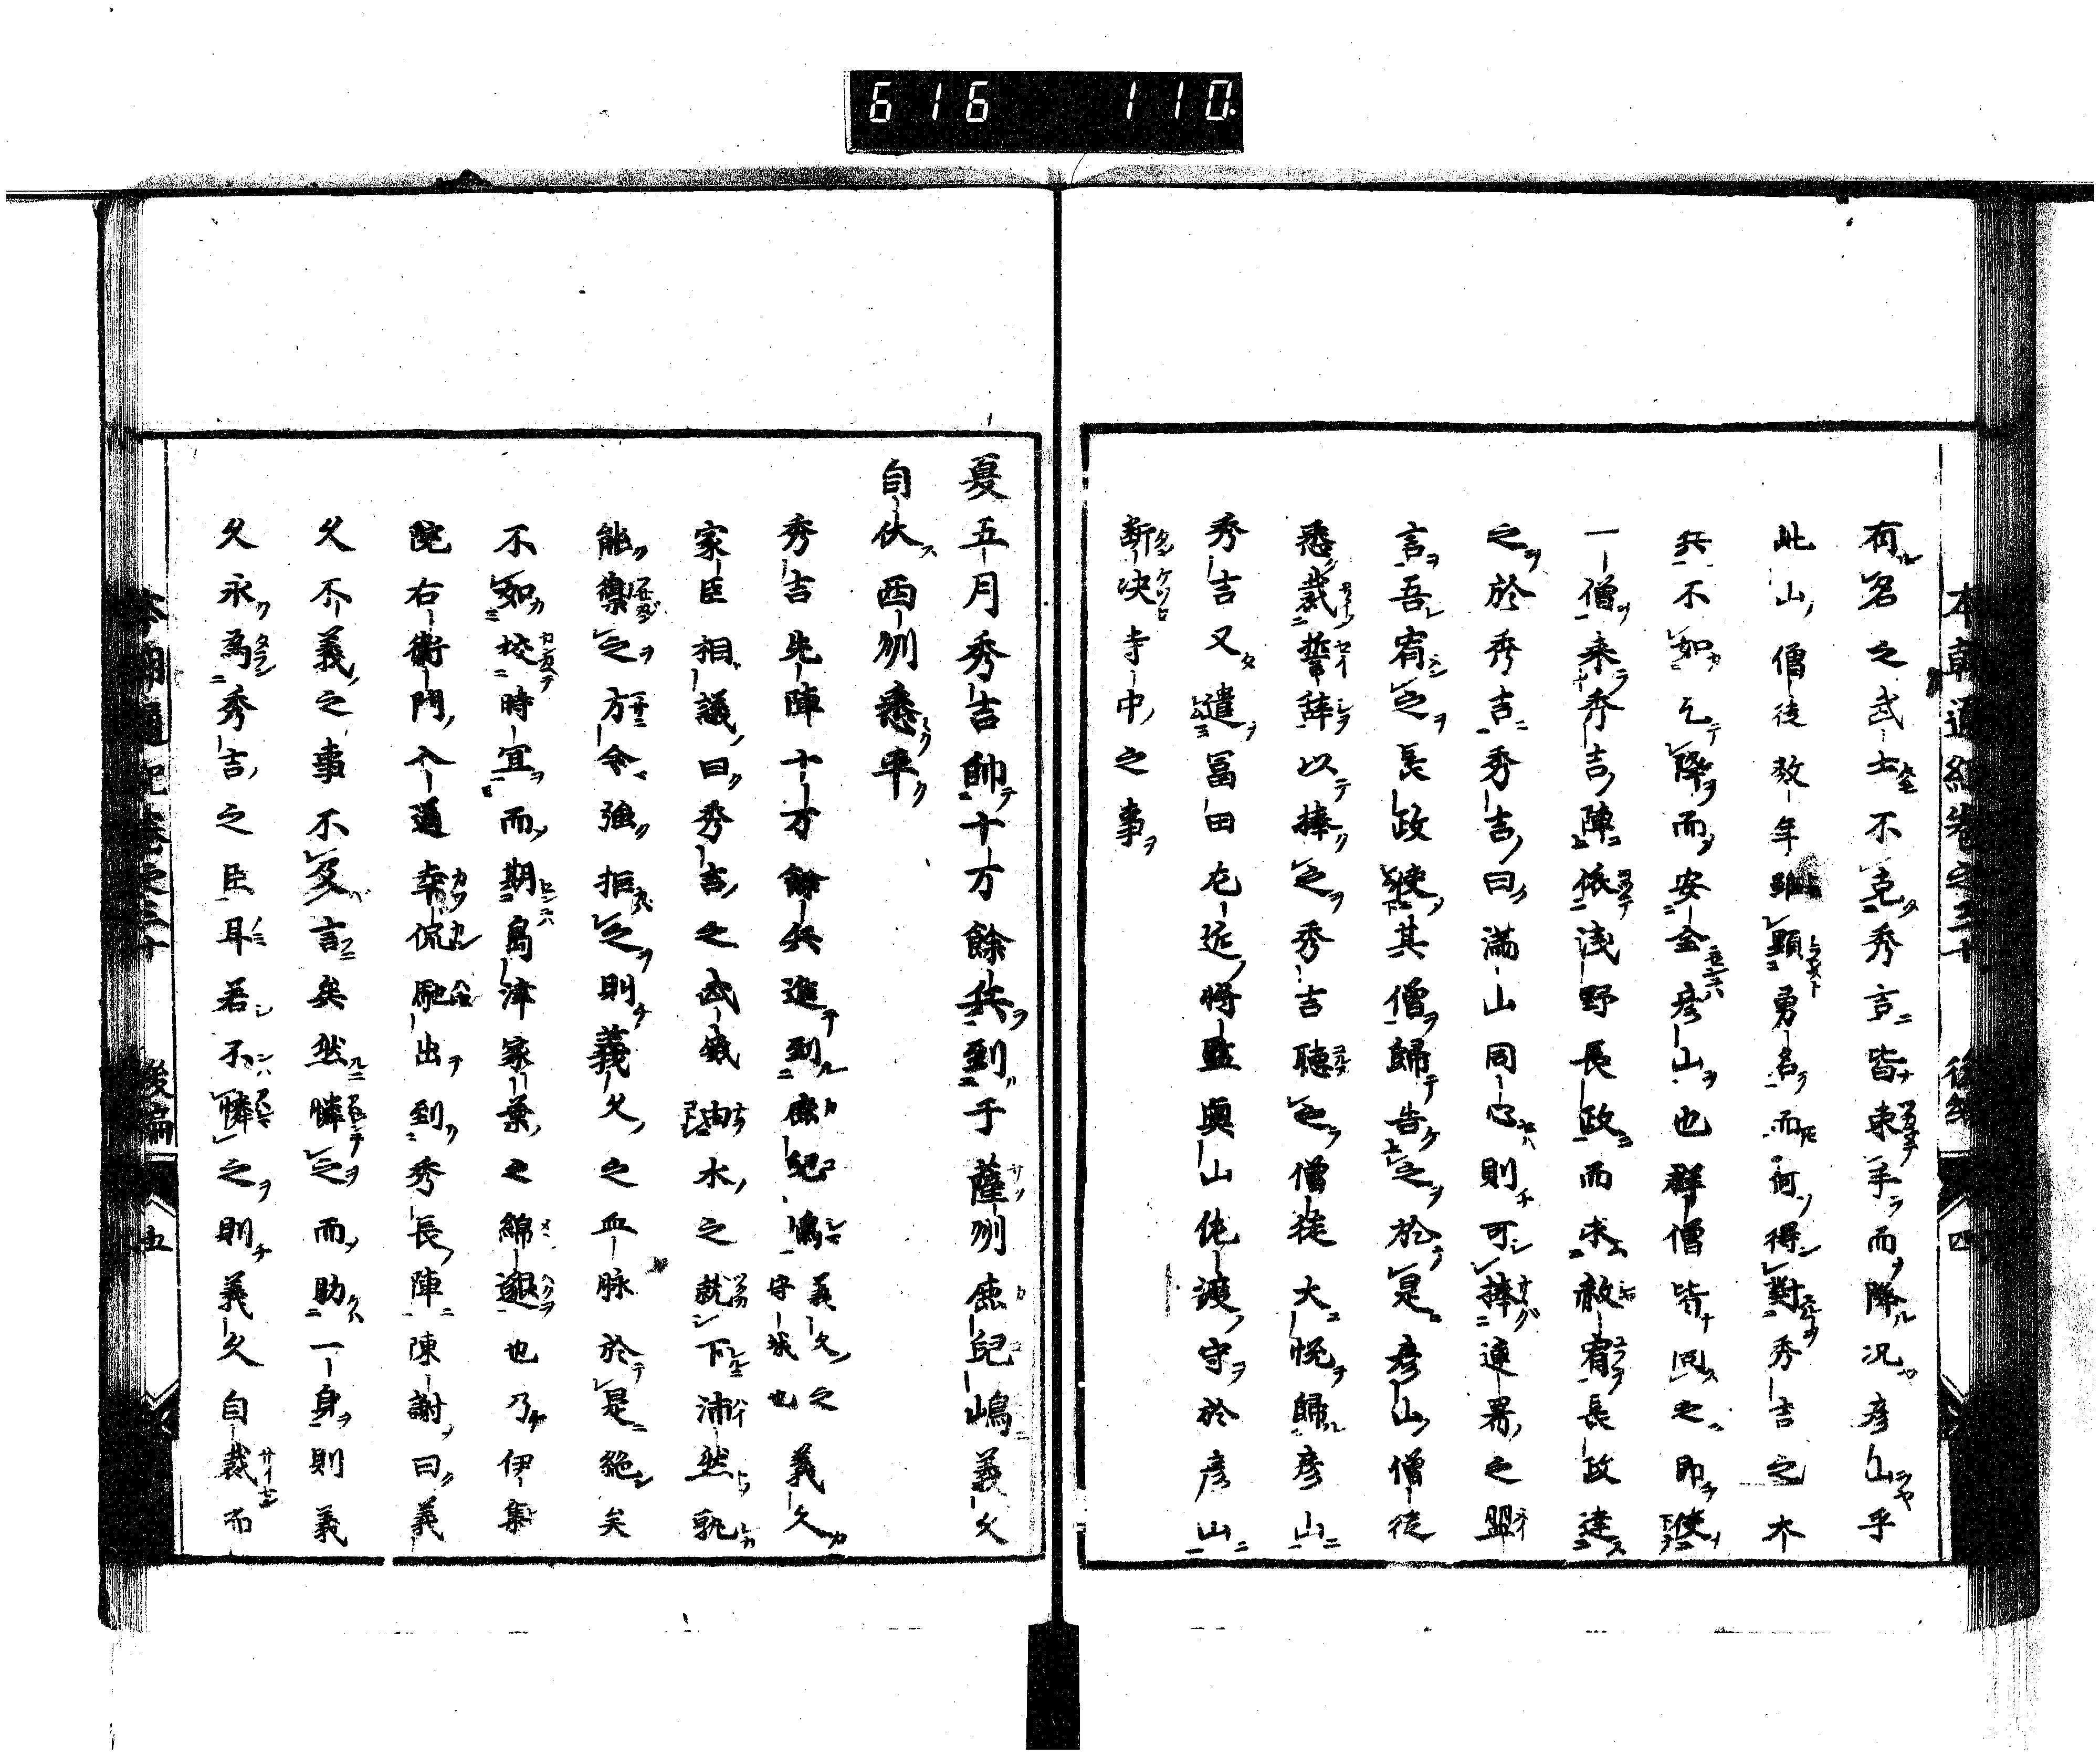 616 110
本朝通紀巻之三十 後編 四
有名之武士不克秀吉皆束手而降況彦山乎
此山僧徒数年雖顕勇名而何得對秀吉之大
兵不如乞降而安全彦山也群僧皆同之即使
一僧来秀吉陣依浅野長政而求赦宥長政達
之於秀吉秀吉曰満山同心則可捧連署之盟
言吾宥之長政使其僧歸告之於是彦山僧徒
悉裁誓辞以捧之秀吉聴之僧徒大悦歸彦山
秀吉又遣冨田左近将監奥山佐渡守於彦山
断決寺中之事
夏五月秀吉帥十万餘兵到于薩州鹿児嶋義久
自伏西州悉平
秀吉先陣十万餘兵進到鹿児嶋義久之守城也義久
家臣相議曰秀吉之武威由水之就下沛然孰
能禦之方今強拒之則義久之血脉於是絶矣
不如校時宜而期島津家葉之綿邈也乃伊集
院右衛門入道幸侃馳出到秀長陣陳謝曰義
久不義之事不及言矣然憐之而助一身則義
久永為秀吉之臣耳若不憐之則義久自裁而
本朝通紀巻之三十 後編 五